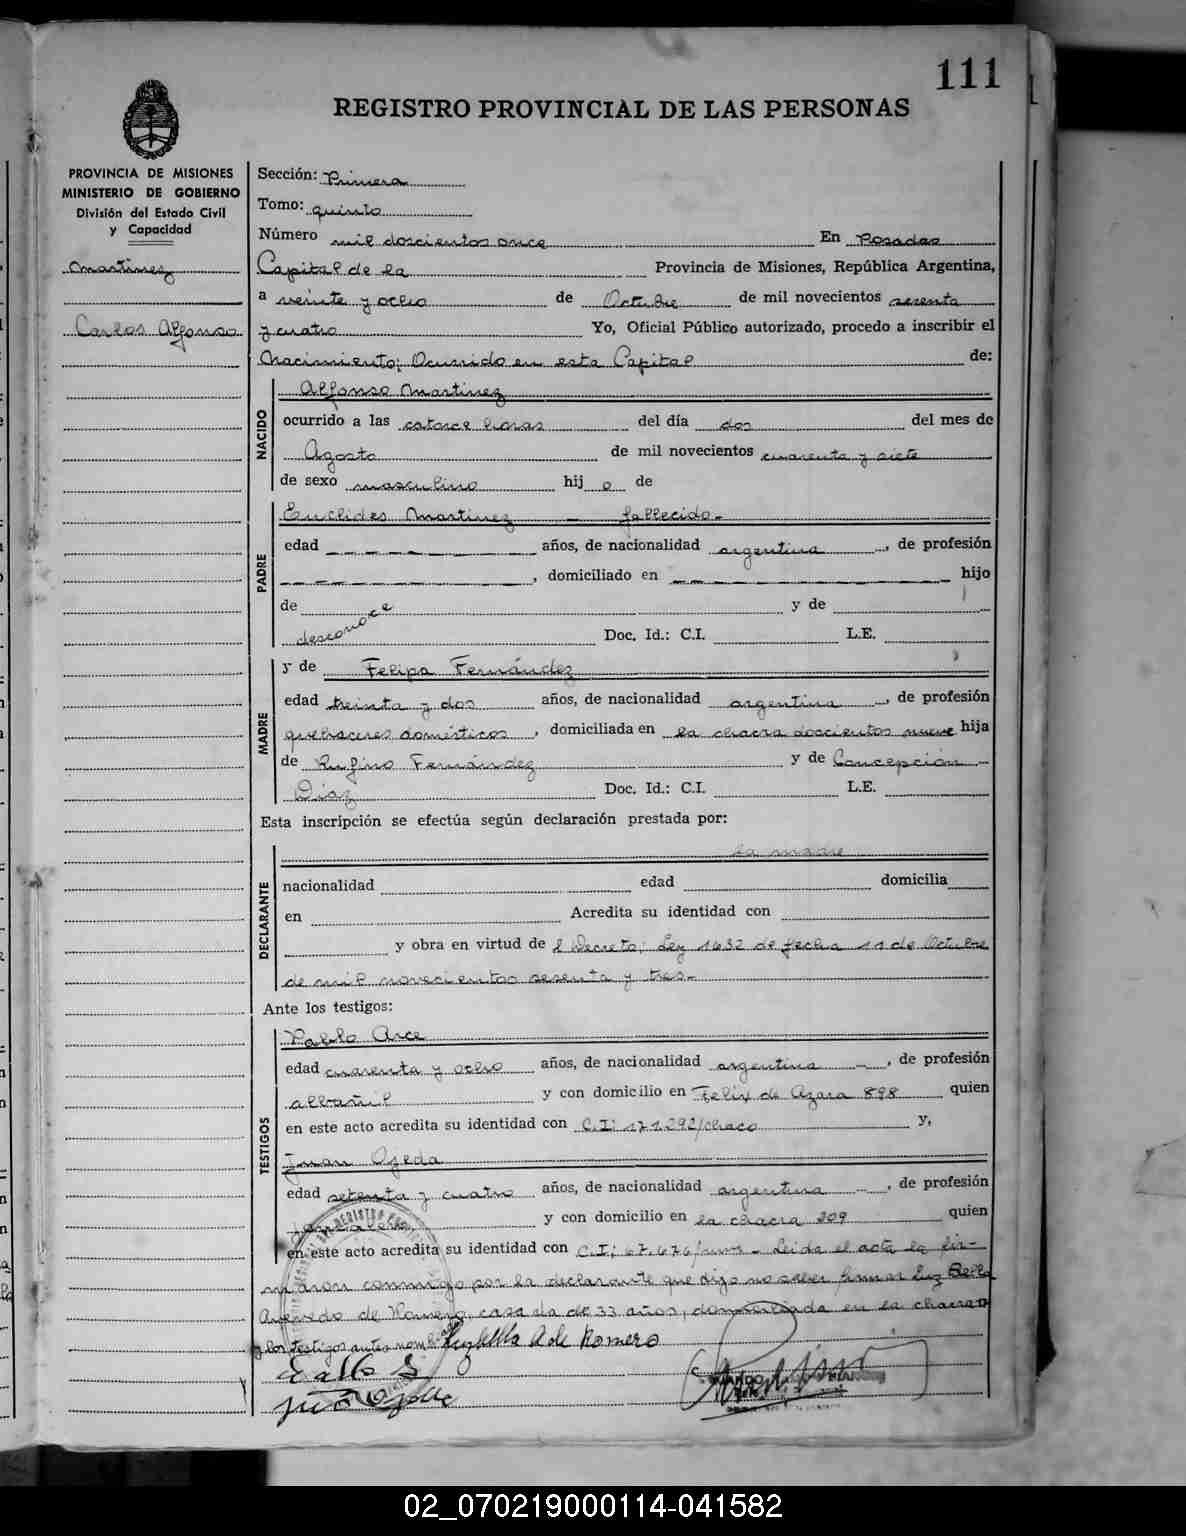 111
REGISTRO PROVINCIAL DE LAS PERSONAS
PROVINCIA DE MISIONES
MINISTERIO DE GOBIERNO
División del Estado Civil
y Capacidad
Martinez
Carlos Alfonso
Sección: Primera
Tomo: quinto
Número mil doscientos once En Posadas
Capital de la Provincia de Misiones, República Argentina,
a veinte y ocho de Octubre de mil novecientos sesenta
y cuatro Yo, Oficial Público autorizado, procedo a inscribir el
Nacimiento; Ocurrido en esta Capital de:
NACIDO
Alfonso Martinez
ocurrido a las catorce horas del día dos del mes de
Agosto de mil novecientos cuarenta y siete
de sexo masculino hij o de
PADRE
Euclides Martinez - fallecido.-
edad años, de nacionalidad argentina, de profesión
, domiciliado en hijo
de desconoce y de
Doc. Id.: C.I. L.E.
MADRE
y de Felipa Fernández
edad treinta y dos años, de nacionalidad argentina, de profesión
quehaceres domésticos, domiciliada en la chacra doscientos nueve hija
de Rufino Fernández y de Concepción
Diaz Doc. Id.: C.I. L.E.
Esta inscripción se efectúa según declaración prestada por:
DECLARANTE
la madre
nacionalidad edad domicilia
en Acredita su identidad con
y obra en virtud de l Decreto; Ley 1632 de fecha 11 de Octubre
de mil novecientos sesenta y tres.-
Ante los testigos:
TESTIGOS
Pablo Arce
edad cuarenta y ocho años, de nacionalidad argentina, de profesión
albañil y con domicilio en Felix de Azara 898 quien
en este acto acredita su identidad con C.I: 171.292/chaco y,
Juan Ojeda
edad setenta y cuatro años, de nacionalidad argentina, de profesión
y con domicilio en la chacra 209 quien
en este acto acredita su identidad con C.I; 67.676/mns - Leida el acta la fir-
maron conmigo por la declarante que dijo no saber firmar Luz Bella
Acevedo de Romero, casada de 33 años, domiciliada en la chacra
y los testigos antes nombrados
Luzbella A de Romero
02_070219000114-041582